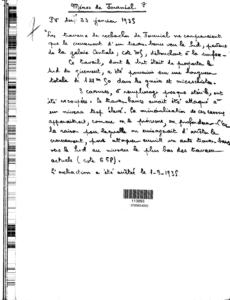 Mines de Jurançial ?
PV du 23 janvier 1935
"Les travaux de recherches de Jurançial ne comprenaient
que le creusement d'un travers-bancs vers le Sud, partant
de la galerie Centrale,
Ce travail, dont le but était de prospecter le
Sud du gisement, a été poursuivi sur une longueur
totale de 122m50 dans les gneiss et micaschistes.
3 cassures, à remplissage presque stérile, ont
été recoupées le travers-bancs aurait été attaqué à
un niveau trop élevé. La minéralisation de ces terrains
apparaîtrait, comme on le présume, en profondeur. C'est
la raison pour laquelle on envisageait d'arrêter le
creusement, pour attaquer ensuite un autre travers-bancs
vers le Sud au niveau le plus bas des travaux
actuels (cote 658).
L'extraction a été arrêtée le 1-3-1935